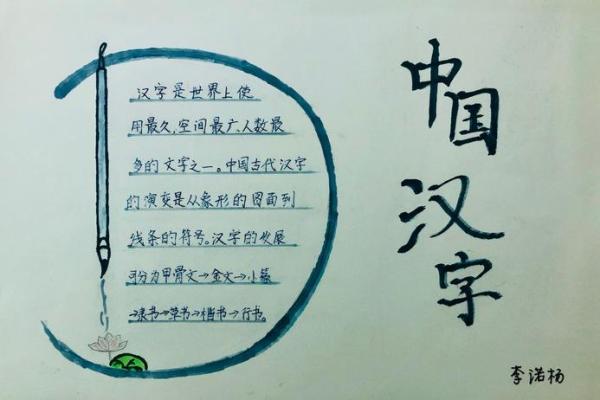 汉字是世界上使
用最久、空间最广、人数最
多的文字之一。中国古代汉字
的演变是从象形的图画到
线条的符号。汉字的发展
可分为甲骨文→金文→小篆
→隶书→草书→楷书→行书。
中国汉字
李诺杨